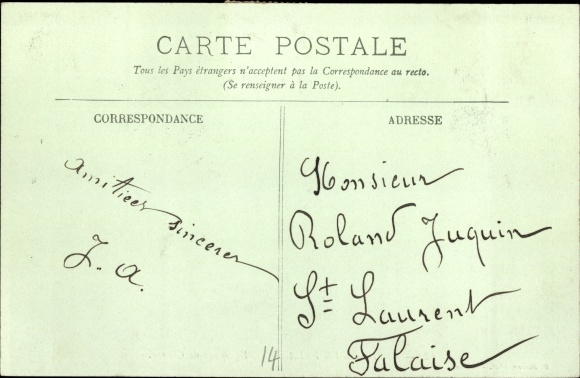 CARTE POSTALE
Tous les Pays étrangers n'acceptent pas la Correspondance au recto.
(Se renseigner à la Poste).
CORRESPONDANCE
amitiées sinceres
J. A.
14
ADRESSE
Monsieur
Roland Juquin
St Laurent
Falaise